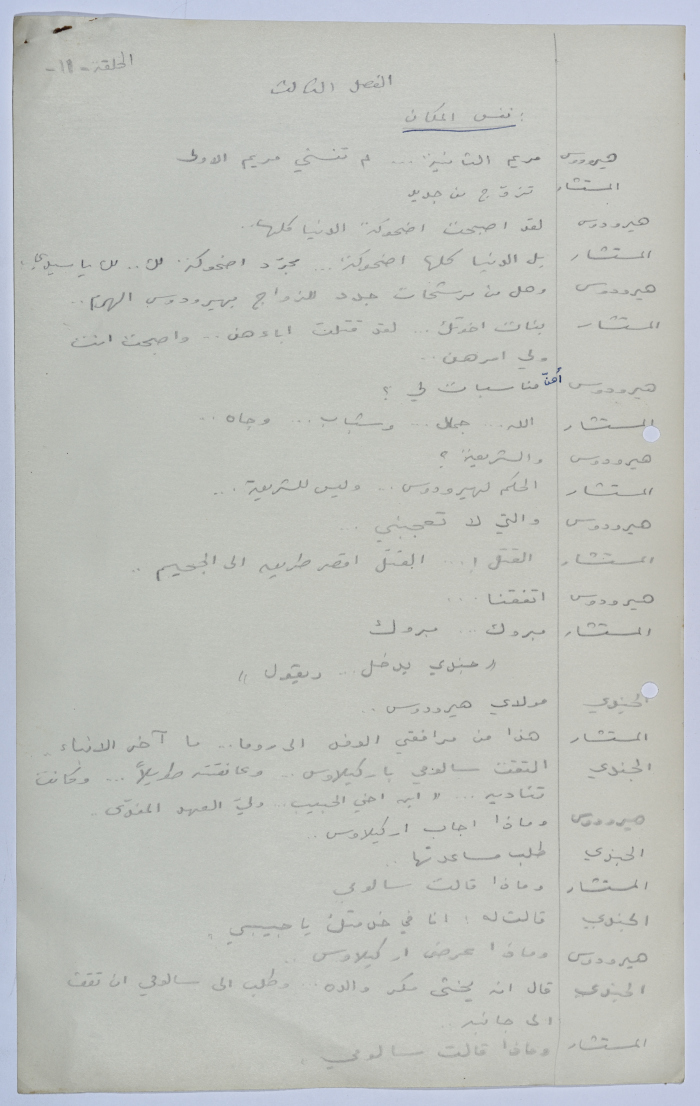 الحلقة - ١١ -
الفصل الثالث
: نفس المكان
هيرودوس مريم الثانية ... لم تنسني مريم الاولى
المستشار تزوّج من جديد
هيرودوس لقد اصبحت اضحوكة الدنيا كلها ..
المستشار بل الدنيا كلها اضحوكة ... مجرّد اضحوكة لك .. لك يا سيدي ..
هيرودوس وهل من مرشحات جدد للزواج بهيرودوس الهرم ..
المستشار بنات اخوتك ... لقد قتلت اباءهن ... واصبحت انت
ولي امرهن ..
هيرودوس أهنّ مناسبات لي ؟
المستشار الله ... جمال ... وشباب ... وجاه ..
هيرودوس والشريعة ؟
المستشار الحكم لهيرودوس ... وليس للشريعة ...
هيرودوس والتي لا تعجبني ...
المستشار القتل ! ... القتل اقصر طريق الى الجحيم ..
هيرودوس اتفقنا ...
المستشار مبروك ... مبروك
" جندي يدخل ... ويقول "
الجندي مولاي هيرودوس ..
المستشار هذا من مرافقي الوفد الى روما ... ما آخر الانباء
الجندي التقت سالومي باركيلاوس .. وعانقته طويلاً ... وكانت
تناديه ... " ابن اخي الحبيب .. وليّ العهد المفدّى ..
هيرودوس وماذا اجاب اركيلاوس ..
الجندي طلب مساعدتها ..
المستشار وماذا قالت سالومي
الجندي قالت له : انا في خدمتك يا حبيبي .
هيرودوس وماذا عرض اركيلاوس ..
الجندي قال انه يخشى مكر والده ... وطلب الى سالومي ان تقف
الى جانبه ..
المستشار وماذا قالت سالومي .